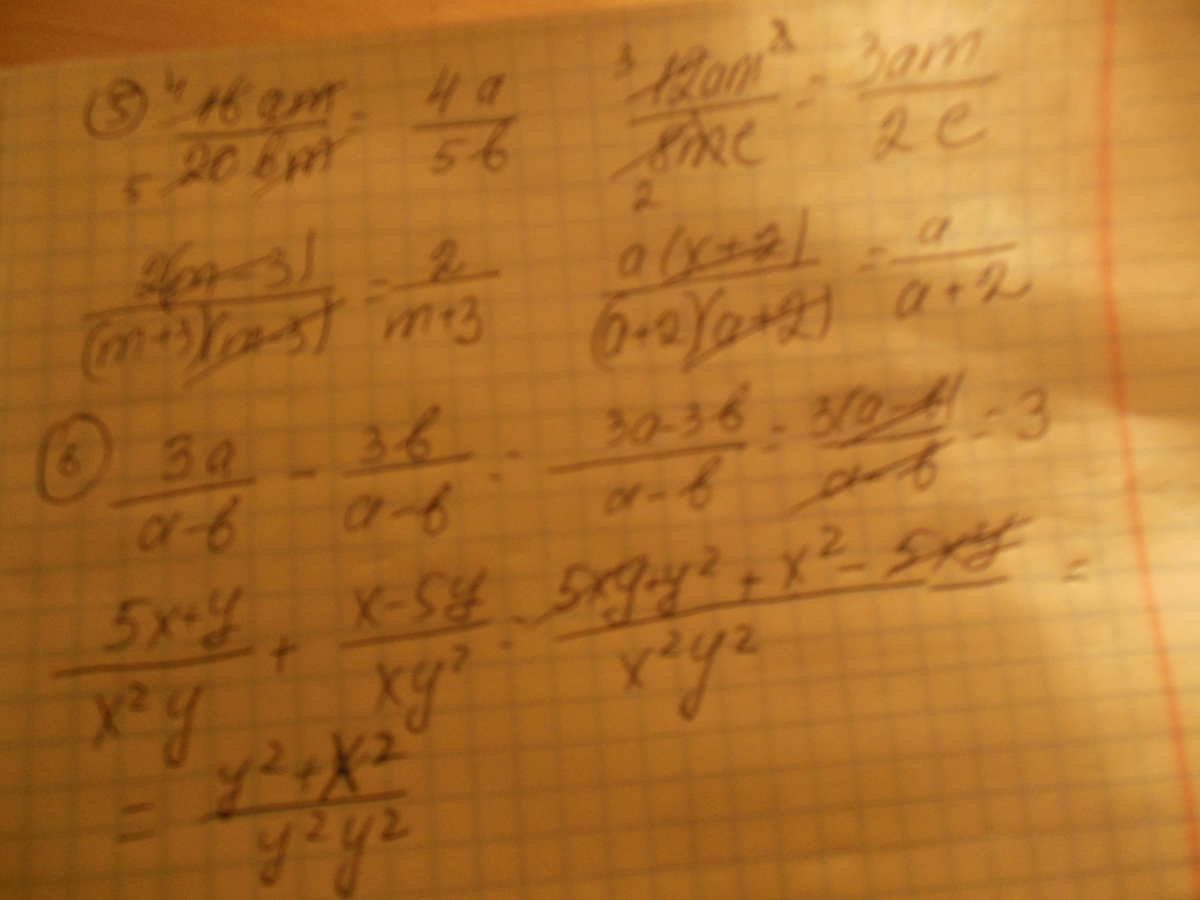 5 4 16am/20bm 5 = 4a/5b 3 12am²/8mc 2 = 3am/2c
2(m-3)/(m+3)(m-3) = 2/m+3 a(x+2)/(a+2)(a+2) = a/a+2
6 3a/a-b - 3b/a-b = 3a-3b/a-b = 3(a-b)/a-b = 3
5x+y/x²y + x-5y/xy² = 5xy+y²+x²-5xy/x²y² =
= y²+x²/y²y²